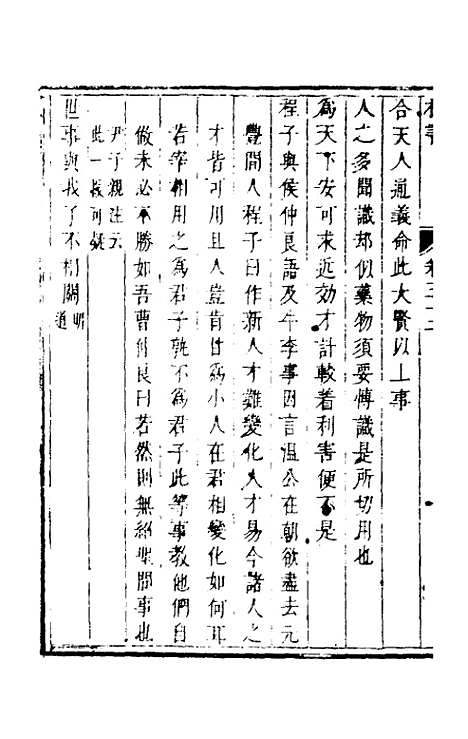 合天人通義命此大賢以上事
人之多聞識却似藥物須要博識是所切用也
為天下安可求近効才計較着利害便不是
程子與侯仲良語及牛李事因言溫公在朝欲盡去元
豐間人程子曰作新人才難變化人才易今諸人之
才皆可用且人豈肯甘為小人在君相變化如何耳
若宰相用之為君子孰不為君子此等事教他們自
做未必不勝如吾曹仲良曰若然則無紹聖間事也
尹子親注云
此一段可疑
世事與我了不相關
明
道